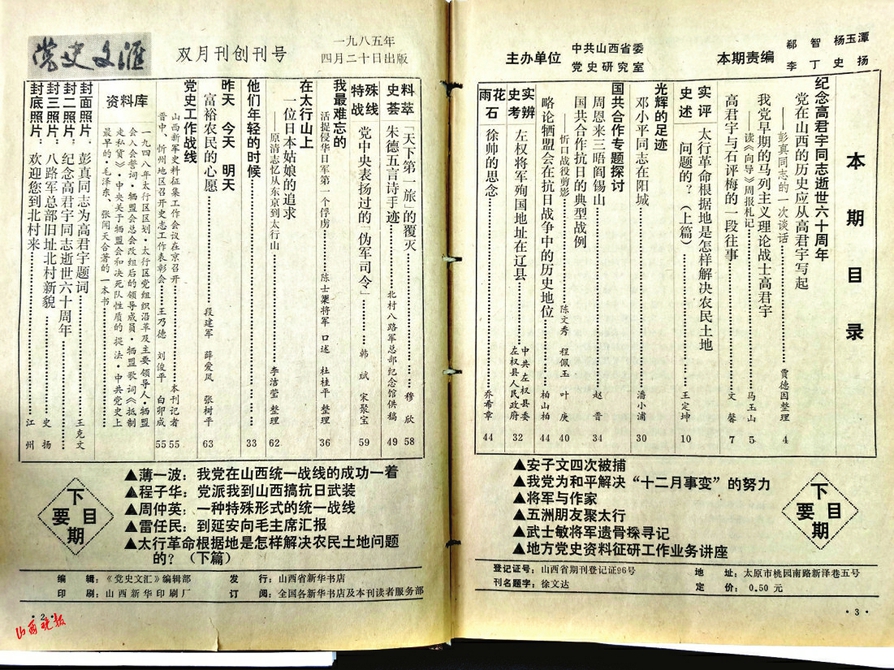 主办单位 中共山西省委
党史研究室
本期责编 郗智 杨玉潭
李丁 史扬
本期目录
纪念高君宇同志逝世六十周年
党在山西的历史应从高君宇写起
——彭真同志的一次谈话 贾德因整理 4
我党早期的马列主义理论战士高君宇
——读《向导》周报札记 马玉山 5
高君宇与石评梅的一段往事 文馨 7
史实述评
太行革命根据地是怎样解决农民土地
问题的？（上篇） 王定坤 10
光辉的足迹
邓小平同志在阳城 潘小浦 30
国共合作专题探讨
周恩来三晤阎锡山 赵晋 34
国共合作抗日的典型战例
——忻口战役剪影 陈文秀 程佩玉 叶庚 40
略论牺盟会在抗日战争中的历史地位 柏山柏 44
史实考辨
左权将军殉国地址在辽县 中共左权县委
左权县人民政府 32
雨花石
徐帅的思念 乔希章 44
下期要目
▲安子文四次被捕
▲我党为和平解决“十二月事变”的努力
▲将军与作家
▲五洲朋友聚太行
▲武士敏将军遗骨探寻记
▲地方党史资料征研工作业务讲座
登记证号：山西省期刊登记证96号 地址：太原市桃园南路新泽巷五号
刊名题字：徐文达 定价：0.50元
·3·
党史文汇
双月刊创刊号
一九八五年
四月二十日出版
史料荟萃
「天下第一旅」的覆灭 穆欣 58
朱德五言诗手迹 北村八路军总部纪念馆供稿 49
特殊战线
党中央表扬过的「伪军司令」 韩斌 宋聚宝 59
我最难忘的
活捉侵华日军第一个俘虏 陈士榘将军口述 杜桂平整理 36
在太行山上
一位日本姑娘的追求
——原清志忆从东京到太行山 李洁莹整理 62
他们年轻的时候 33
昨天 今天 明天
富裕农民的心愿 段建军 薛爱凤 张树平 63
党史工作战线
山西新军史料征集工作会议在京召开 本刊记者 55
晋中、忻州地区召开史志工作表彰会 王乃德 刘俊平 白卯成 55
资料库
一九四八年太行区区划·太行区党组织沿革及主要领导人·牺盟
会入会誓词·牺盟会总会改组后的领导成员·牺盟歌词《抵制
走私货》·中央关于牺盟会和决死队性质的提法·中共党史上
最早的·毛泽东、张闻天合著的一本书
封面照片：彭真同志为高君宇题词 王克文
封二照片：纪念高君宇同志逝世六十周年
封三照片：八路军总部旧址北村新貌 史扬
封底照片：欢迎您到北村来 江州
下期要目
▲薄一波：我党在山西统一战线的成功一着
▲程子华：党派我到山西搞抗日武装
▲周仲英：一种特殊形式的统一战线
▲雷任民：到延安向毛主席汇报
▲太行革命根据地是怎样解决农民土地问题
的？（下篇）
编辑：《党史文汇》编辑部 发行：山西省新华书店
印刷：山西新华印刷厂 订阅：全国各新华书店及本刊读者服务部
·2·
山西晚报